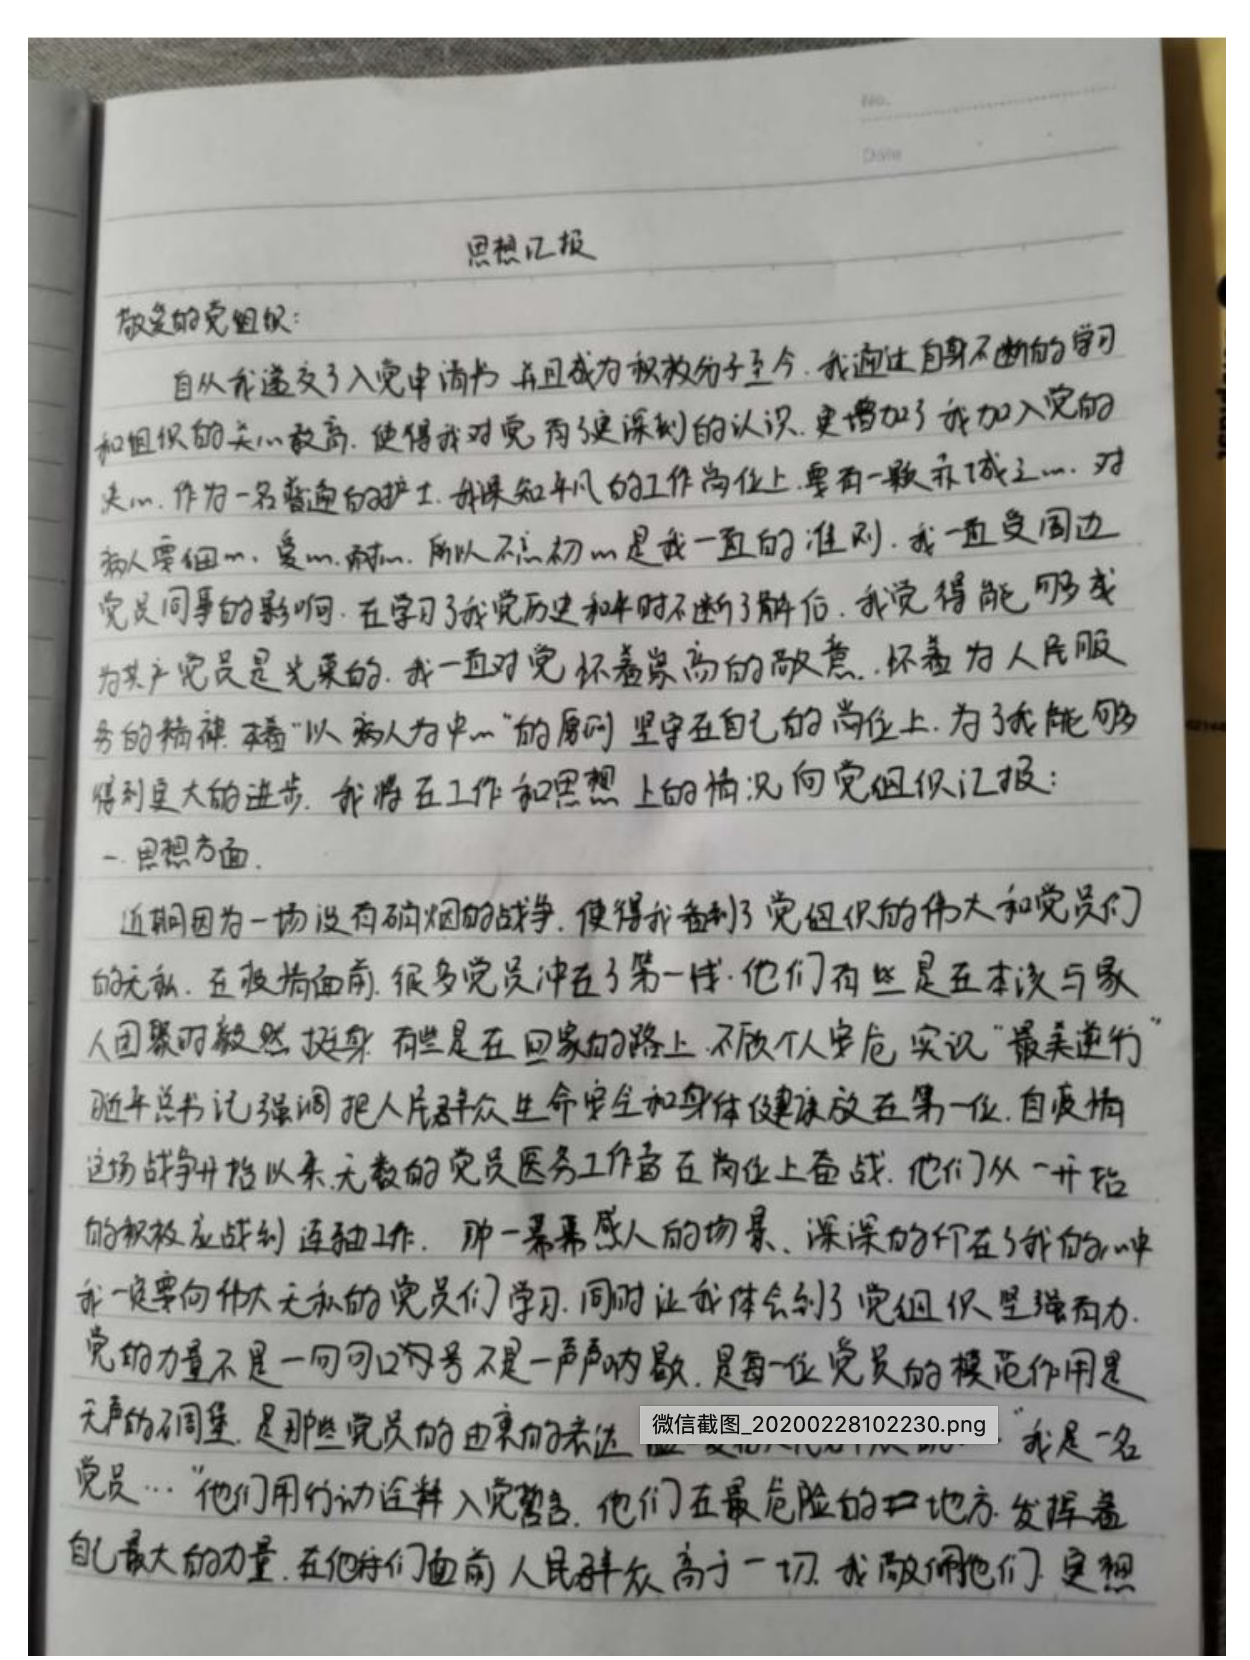 No.
Date
思想汇报
敬爱的党组织:
自从我递交了入党申请书 并且成为积极分子至今,我通过自身不断的学习
和组织的关心教育,使得我对党有了更深刻的认识,更增加了我加入党的
决心,作为一名普通的护士,我深知平凡的工作岗位上,要有一颗赤诚之心,对
病人要细心、爱心、耐心,所以不忘初心是我一直的准则,我一直受周边
党员同事的影响,在学习了我党历史和平时不断了解后,我觉得能够成
为共产党员是光荣的,我一直对党怀着崇高的敬意,怀着为人民服
务的精神,本着“以病人为中心”的原则 坚守在自己的岗位上,为了我能够
得到更大的进步,我将在工作和思想上的情况向党组织汇报:
一.思想方面.
近期因为一场没有硝烟的战争,使得我看到了党组织的伟大和党员们
的无私,在疫情面前,很多党员冲在了第一线,他们有些是在本该与家
人团聚时毅然挺身,有些是在回家的路上,不顾个人安危 实识“最美逆行”
近平总书记强调把人民群众生命安全和身体健康放在第一位,自疫情
这场战争开始以来,无数的党员医务工作者在岗位上奋战,他们从一开始
的积极应战到连轴工作,那一幕幕感人的场景、深深的印在了我的心中
我一定要向伟大无私的党员们学习,同时让我体会到了党组织坚强有力.
党的力量不是一句句口号不是一声声呐喊,是每一位党员的模范作用是
无声的碉堡,是那些党员的由衷的表达 “我是一名
微信截图_20200228102230.png
党员…”他们用行动诠释入党誓言,他们在最危险的地方,发挥着
自己最大的力量,在他们面前 人民群众高于一切,我敬佩他们,更想